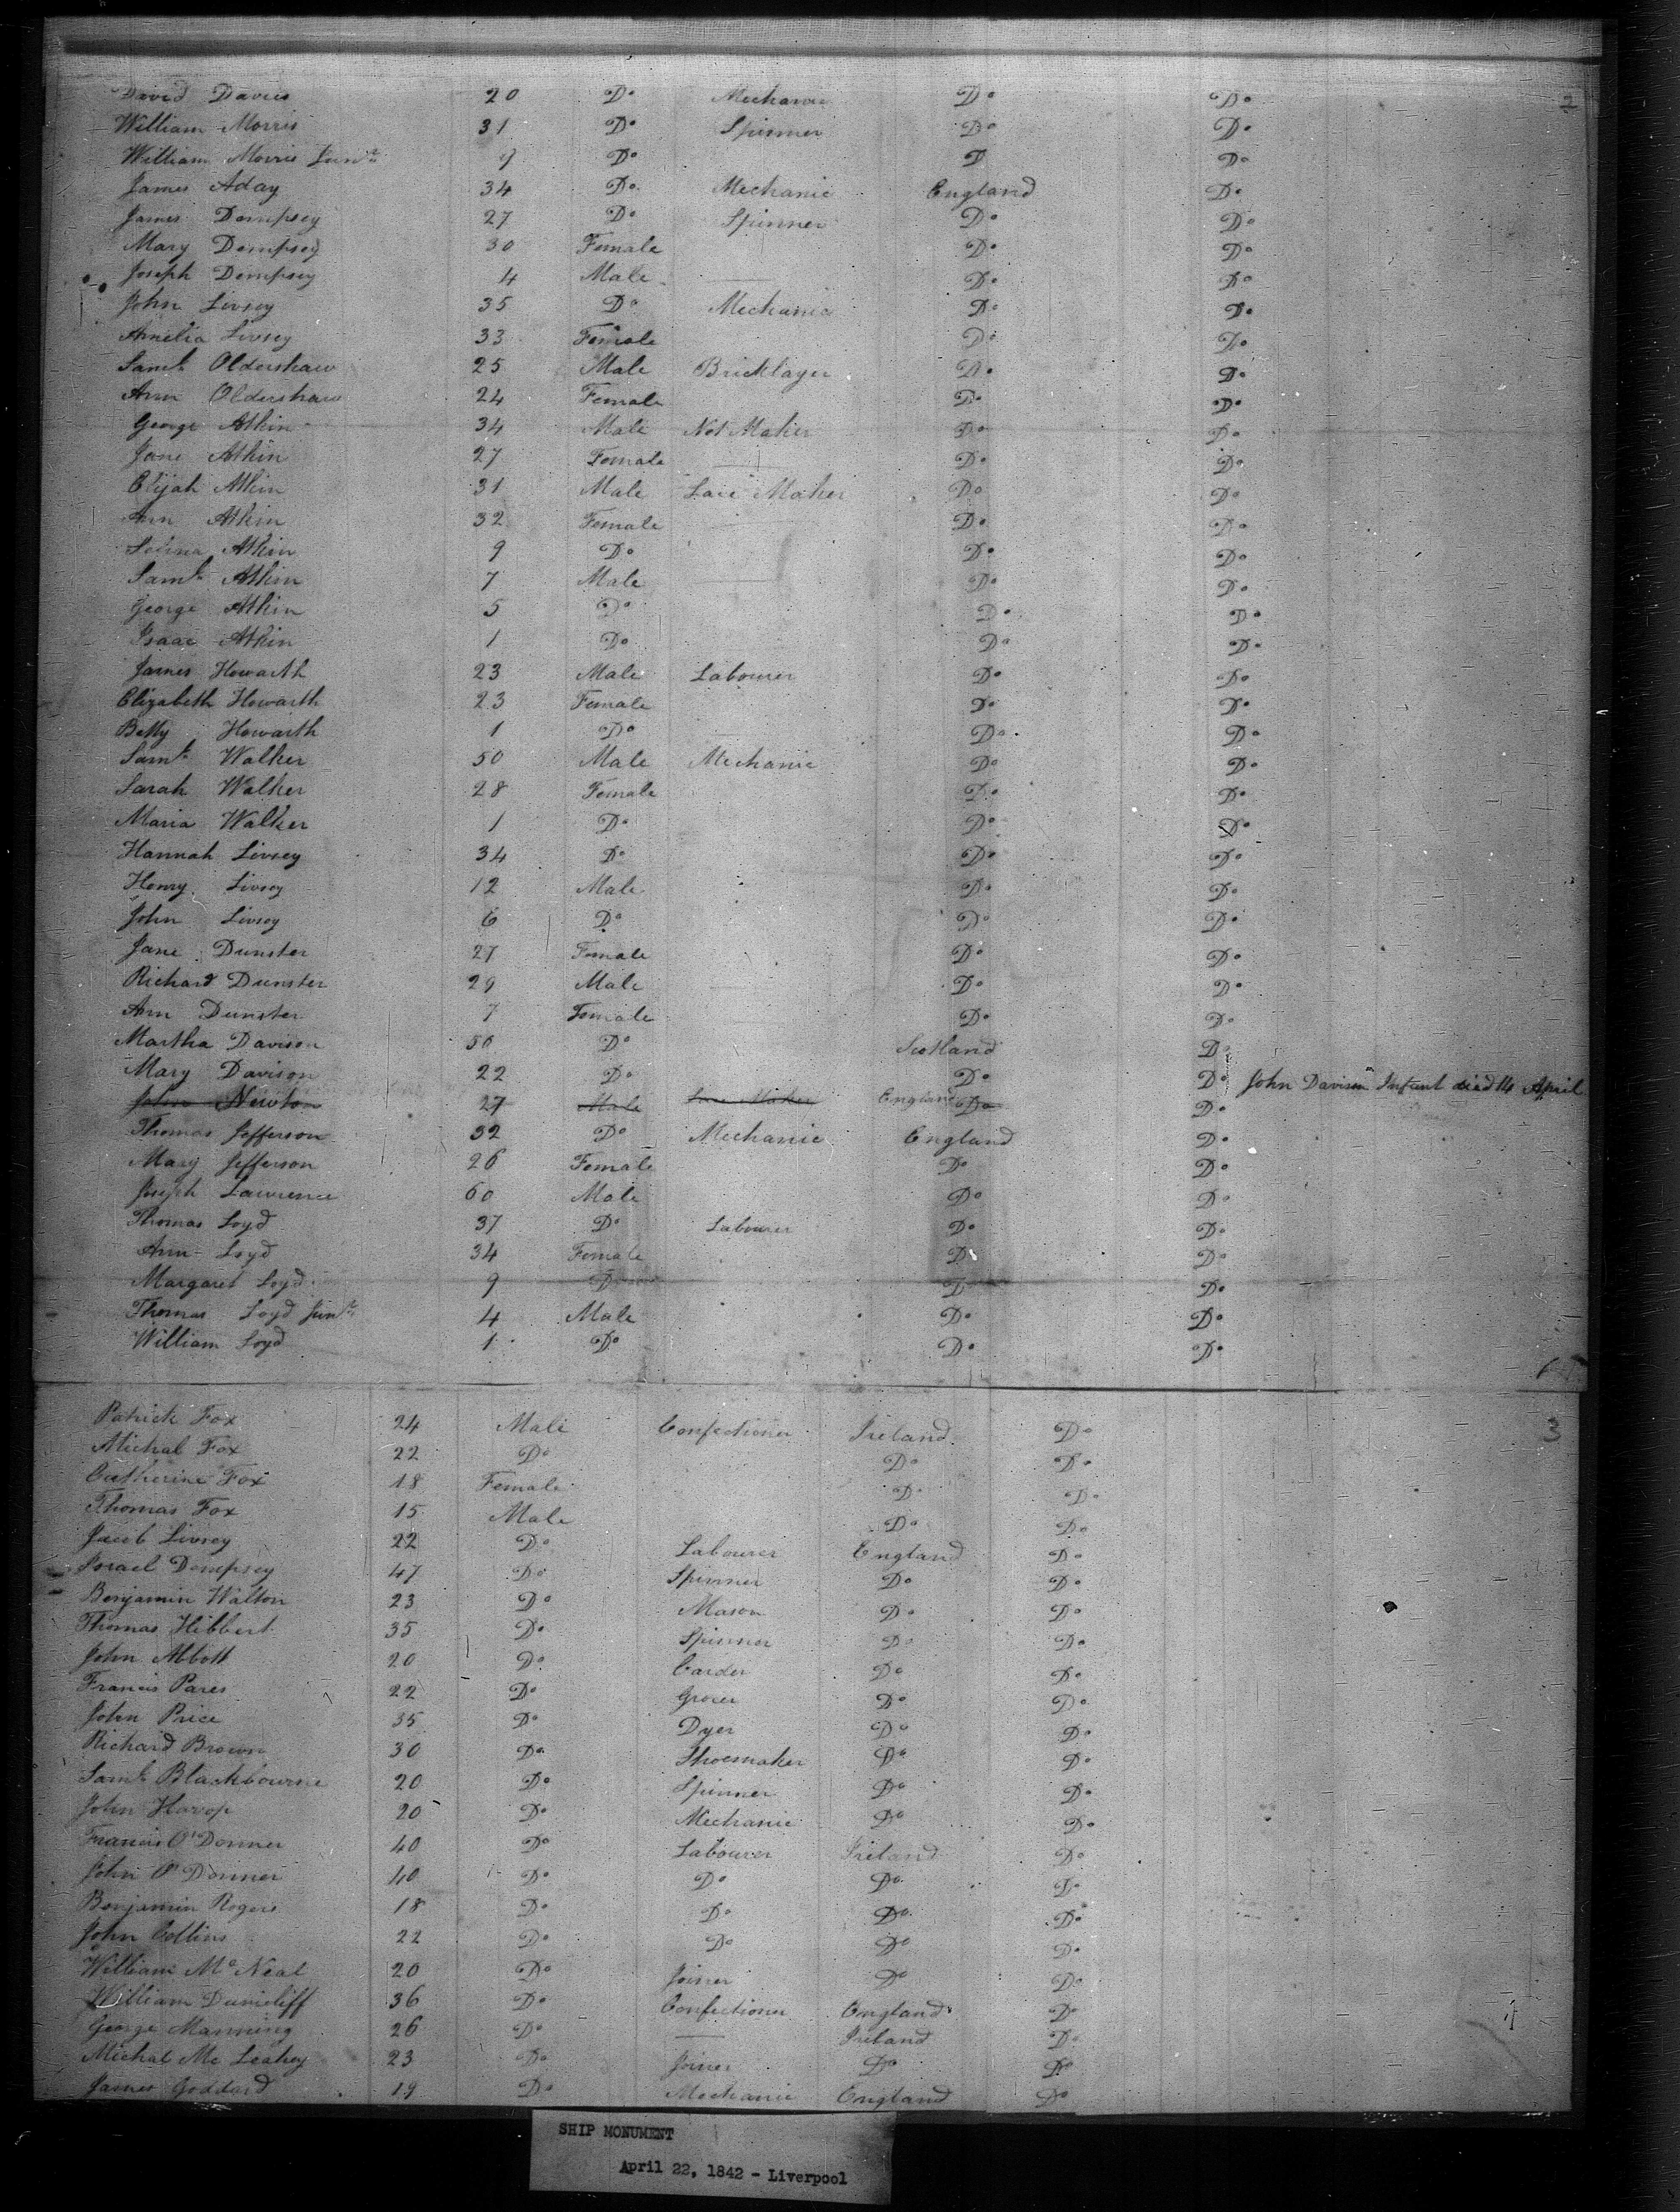 2
David Davies 20 Do Mechanic Do Do
William Morris 31 Do Spinner Do Do
William Morris Junr 9 Do D Do
James Aday 34 Do Mechanic England Do
James Dempsey 27 Do Spinner Do Do
Mary Dempsey 30 Female Do Do
Joseph Dempsey 4 Male Do Do
John Livsey 35 Do Mechanic Do Do
Amelia Livsey 33 Female Do Do
Saml Oldershaw 25 Male Bricklayer Do Do
Ann Oldershaw 24 Female Do Do
George Atkin 34 Male Net Maker Do Do
Jane Atkin 27 Female Do Do
Elijah Atkin 31 Male Lace Maker Do Do
Ann Atkin 32 Female Do Do
Selina Atkin 9 Do Do Do
Saml Atkin 7 Male Do Do
George Atkin 5 Do Do Do
Isaac Atkin 1 Do Do Do
James Howarth 23 Male Labourer Do Do
Elizabeth Howarth 23 Female Do Do
Betty Howarth 1 Do Do Do
Saml Walker 50 Male Mechanic Do Do
Sarah Walker 28 Female Do Do
Maria Walker 1 Do Do Do
Hannah Livsey 34 Do Do Do
Henry Livsey 12 Male Do Do
John Livsey 6 Do Do Do
Jane Dunster 27 Female Do Do
Richard Dunster 29 Male Do Do
Ann Dunster 7 Female Do Do
Martha Davison 50 Do Scotland Do
Mary Davison 22 Do Do Do John Davison Infant died 14 April
John Newton 27 Male Lace Maker England Do Do
Thomas Jefferson 32 Do Mechanic England Do
Mary Jefferson 26 Female Do Do
Joseph Lawrence 60 Male Do Do
Thomas Loyd 37 Do Labourer Do Do
Ann Loyd 34 Female Do Do
Margaret Loyd 9 D D Do
Thomas Loyd Junr 4 Male Do Do
William Loyd 1 Do Do Do
3
Patrick Fox 24 Male Confectioner Ireland Do
Michal Fox 22 Do Do Do
Catherine Fox 18 Female Do Do
Thomas Fox 15 Male Do Do
Jacob Livsey 22 Do Labourer England Do
Israel Dempsey 47 Do Spinner Do Do
Benjamin Walton 23 Do Mason Do Do
Thomas Hibbert 35 Do Spinner Do Do
John Abbott 20 Do Carder Do Do
Francis Pares 22 Do Grocer Do Do
John Price 35 Do Dyer Do Do
Richard Brown 30 Do Shoemaker Do Do
Saml Blackbourne 20 Do Spinner Do Do
John Harrop 20 Do Mechanic Do Do
Francis O'Donner 40 Do Labourer Ireland Do
John O'Donner 40 Do Do Do Do
Benjamin Rogers 18 Do Do Do Do
John Collins 22 Do Do Do Do
William McNeal 20 Do Joiner Do Do
William Dunicliff 36 Do Confectioner England Do
George Manning 26 Do Ireland Do
Michal Mc Leahey 23 Do Joiner Do Do
James Goddard 19 Do Mechanic England Do
SHIP MONUMENT
April 22, 1842 - Liverpool